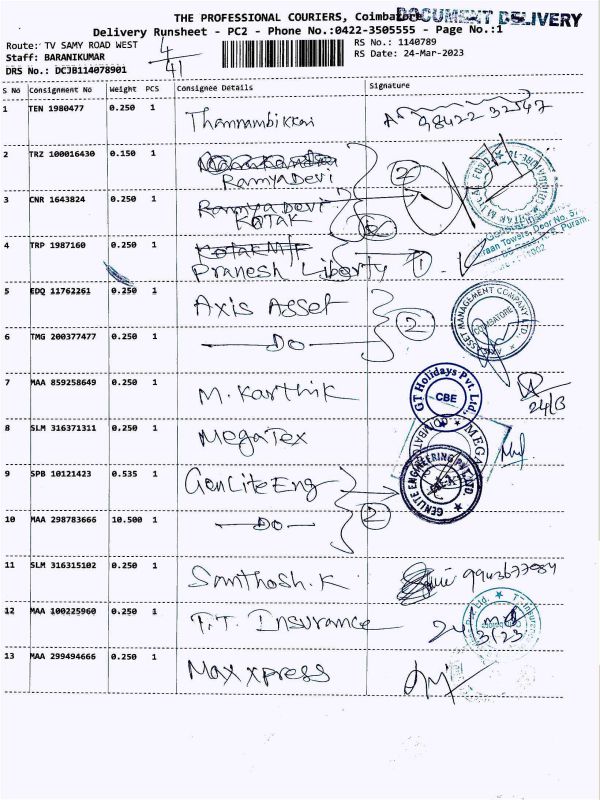 THE PROFESSIONAL COURIERS, Coimbatore
DOCUMENT DELIVERY
Delivery Runsheet - PC2 - Phone No.:0422-3505555 - Page No.:1
Route: TV SAMY ROAD WEST
4/41
RS No.: 1140789
Staff: BARANIKUMAR
RS Date: 24-Mar-2023
DRS No.: DCJB114078901
S No Consignment No Weight PCS Consignee Details Signature
1 TEN 1980477 0.250 1 Thannambikkai 98422 32547
2 TRZ 100016430 0.150 1 Ramya Devi 2
3 CNR 1643824 0.250 1 Ramya Devi
Kotak 2
4 TRP 1987160 0.250 1 Kotak M/F
Pranesh Liberty 1
5 EDQ 11762261 0.250 1 Axis Asset 2
ASSET MANAGEMENT COMPANY LTD.
COIMBATORE
6 TMG 200377477 0.250 1 Do
7 MAA 859258649 0.250 1 M. Karthik
GT Holidays Pvt. Ltd.
CBE
24/3
8 SLM 316371311 0.250 1 MegaTex
MEGA
9 SPB 10121423 0.535 1 GenLite Eng 2
GENLITE ENGINEERING PVT. LTD.
10 MAA 298783666 10.500 1 Do
11 SLM 316315102 0.250 1 Santhosh. K 9943677984
12 MAA 100225960 0.250 1 T.T. Insurance
3/23
13 MAA 299494666 0.250 1 Maxxpress